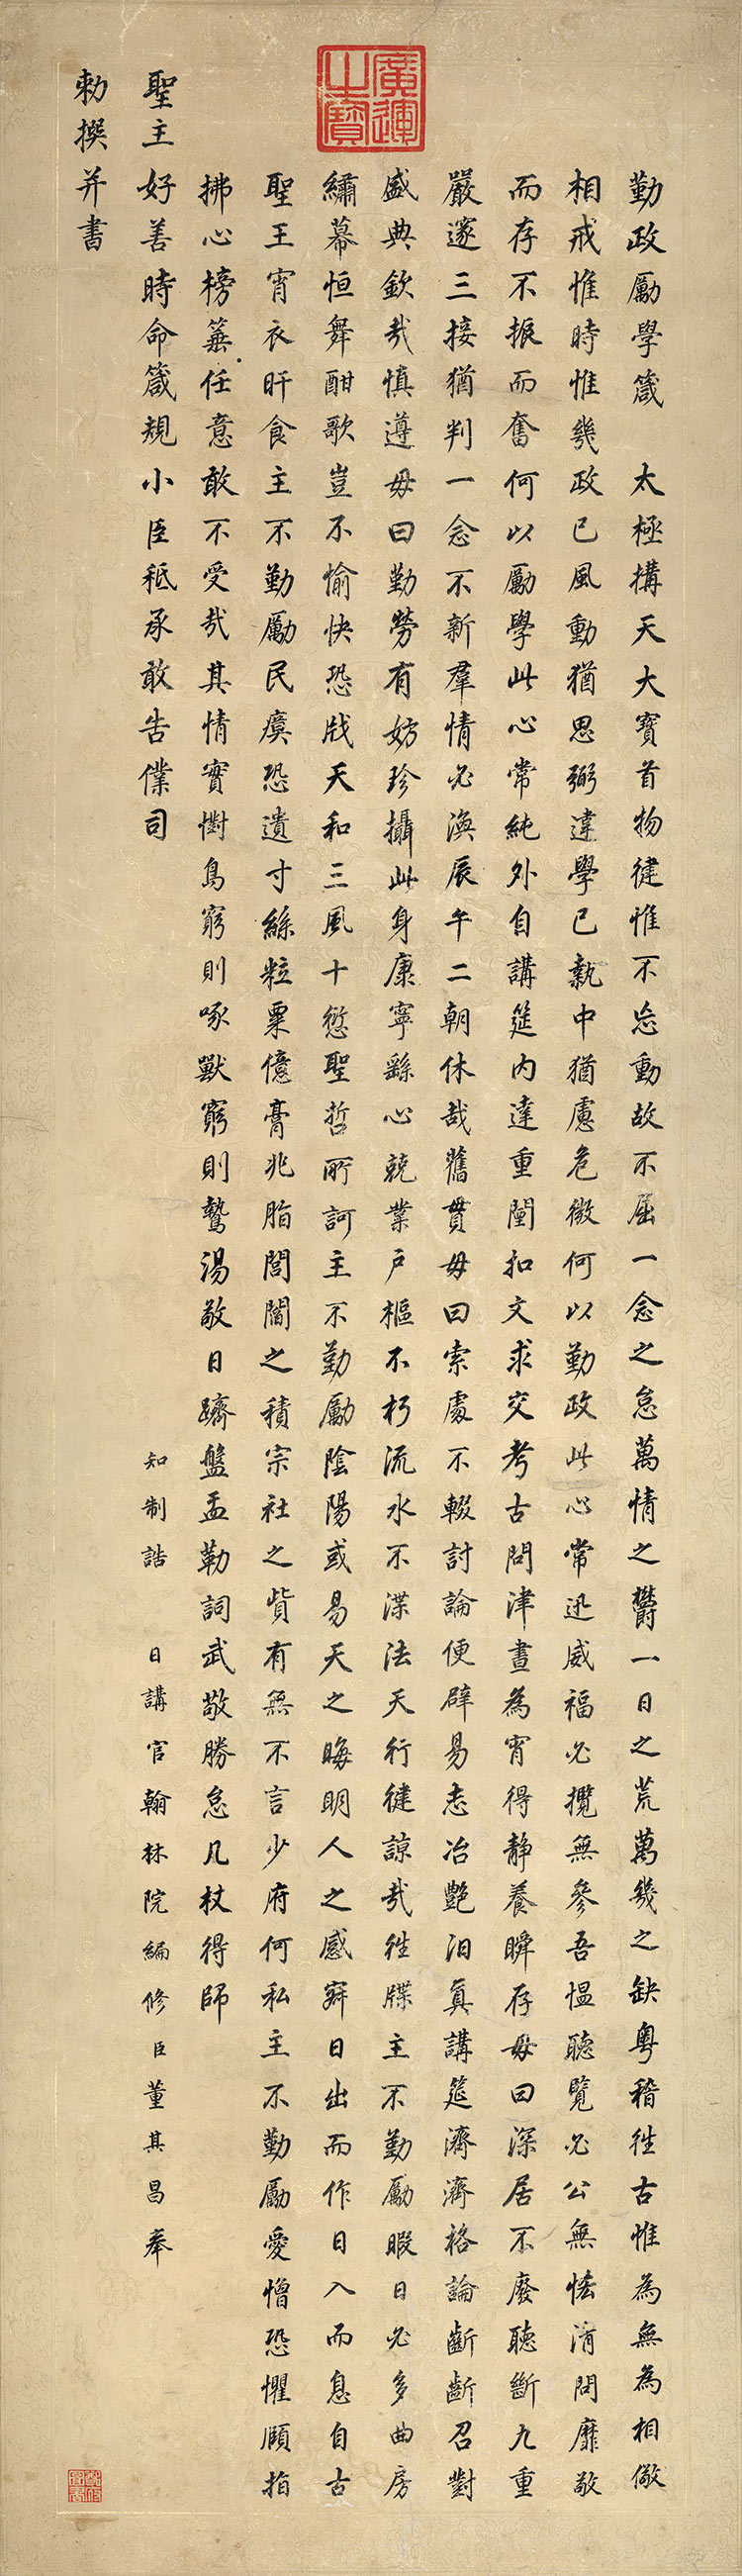 廣運之寶
勤政勵學箴　太極構天大寶首物健惟不息動故不屈一念之怠萬情之鬱一日之荒萬幾之缺粵稽往古惟為無為相儆
相戒惟時惟幾政已風動猶思弼違學已執中猶慮危微何以勤政此心常迅威福必攬無參吾慍聽覽必公無恠清問靡敢
而存不振而奮何以勵學此心常純外自講筵內達重闈扣文求交考古問津晝為宵得靜養瞬存毋曰深居不廢聽斷九重
嚴邃三接猶判一念不新羣情必渙辰午二朝休哉舊貫毋曰索處不輟討論便辟易志冶艷汨真講筵濟濟格論齗齗召對
盛典欽哉慎遵毋曰勤勞有妨珍攝此身康寧繇心兢業戶樞不朽流水不渫法天行健諒哉往牒主不勤勵暇日必多曲房
繡幕恒舞酣歌豈不愉快恐戕天和三風十愆聖哲所訶主不勤勵陰陽或易天之晦明人之感寤日出而作日入而息自古
聖王宵衣旰食主不勤勵民瘼恐遺寸絲粒粟億膏兆脂閭閻之積宗社之貲有無不言少府何私主不勤勵愛憎恐懼頤指
拂心榜箠任意敢不受哉其情實懟鳥窮則啄獸窮則鷙湯敬日躋盤盂勒詞武敬勝怠几杖得師
聖主好善時命箴規小臣秪承敢告僕司　知制誥　日講官翰林院編修臣董其昌奉
勅撰并書